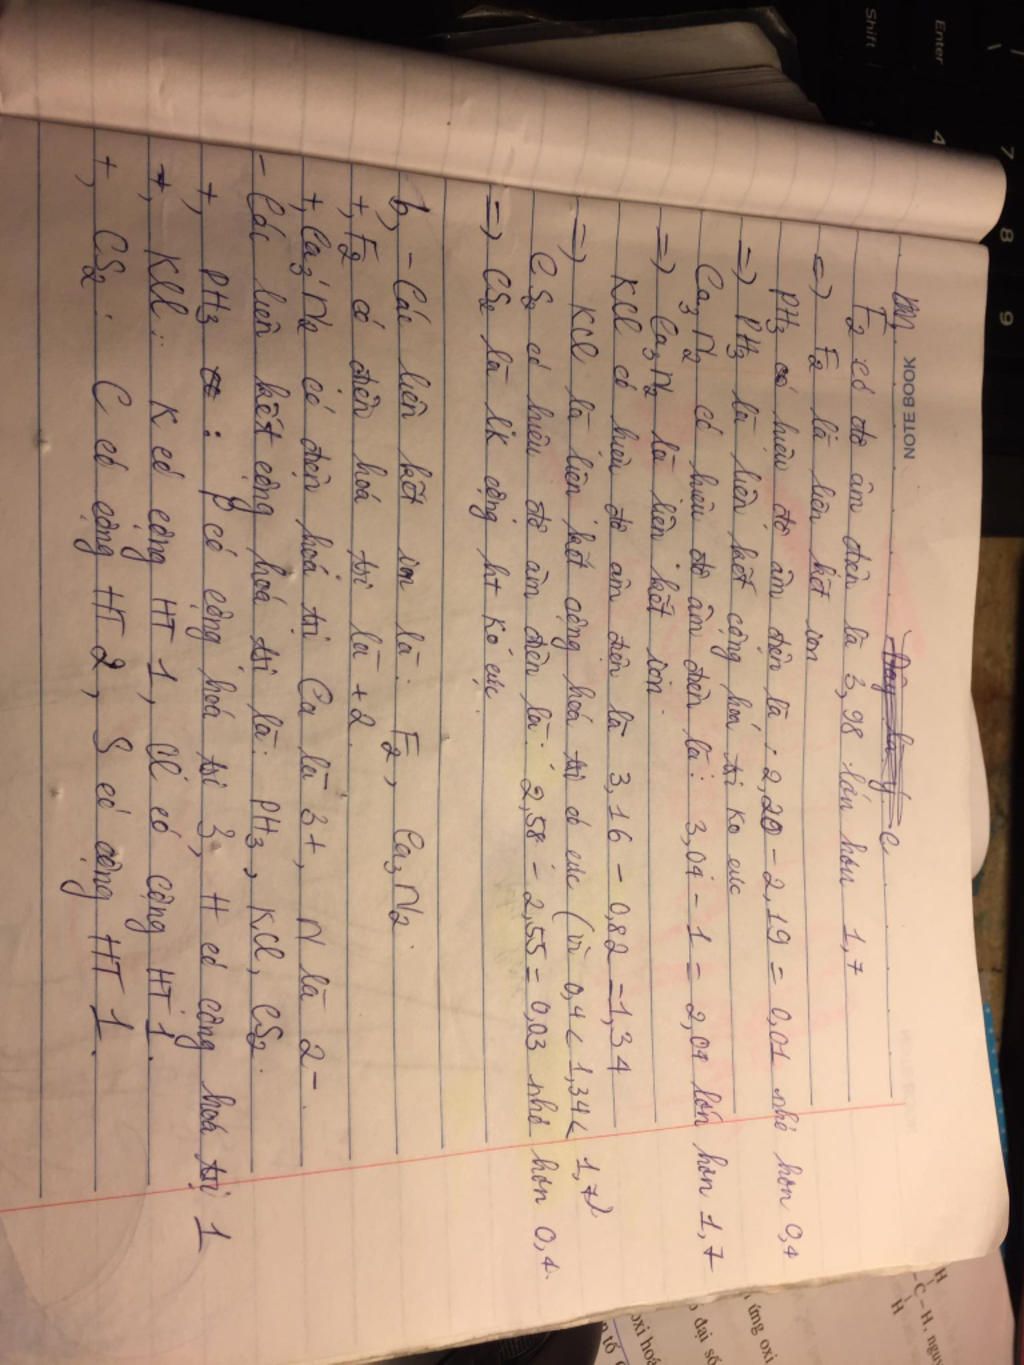 NOTEBOOK
F₂ có độ âm điện là 3,98 lớn hơn 1,7
=) F₂ là liên kết ion
PH₃ có hiệu độ âm điện là: 2,20 - 2,19 = 0,01 nhỏ hơn 0,4
=) PH₃ là liên kết cộng hóa trị ko cực
Ca₃N₂ có hiệu độ âm điện là: 3,04 - 1 = 2,04 lớn hơn 1,7
=) Ca₃N₂ là liên kết ion.
KCl có hiệu độ âm điện là 3,16 - 0,82 = 1,34
=) KCl là liên kết cộng hoá trị có cực (vì 0,4 < 1,34 < 1,7)
CS₂ có hiệu độ âm điện là: 2,58 - 2,55 = 0,03 nhỏ hơn 0,4.
=) CS₂ là lk cộng ht ko cực.
b, - Các liên kết ion là: F₂, Ca₃N₂.
+, F₂ có điện hoá trị là +2.
+, Ca₃N₂ có điện hoá trị Ca là 3+, N là 2-.
- Các liên kết cộng hoá trị là: PH₃, KCl, CS₂.
+, PH₃: P có cộng hoá trị 3, H có cộng hoá trị 1
+, KCl: K có cộng HT 1, Cl có cộng HT 1.
+, CS₂: C có cộng HT 2, S có cộng HT 1.
Shift
Enter
4
7
8
9
H
- C - H, nguy
H
ứng oxi
đại số
oxi hoá